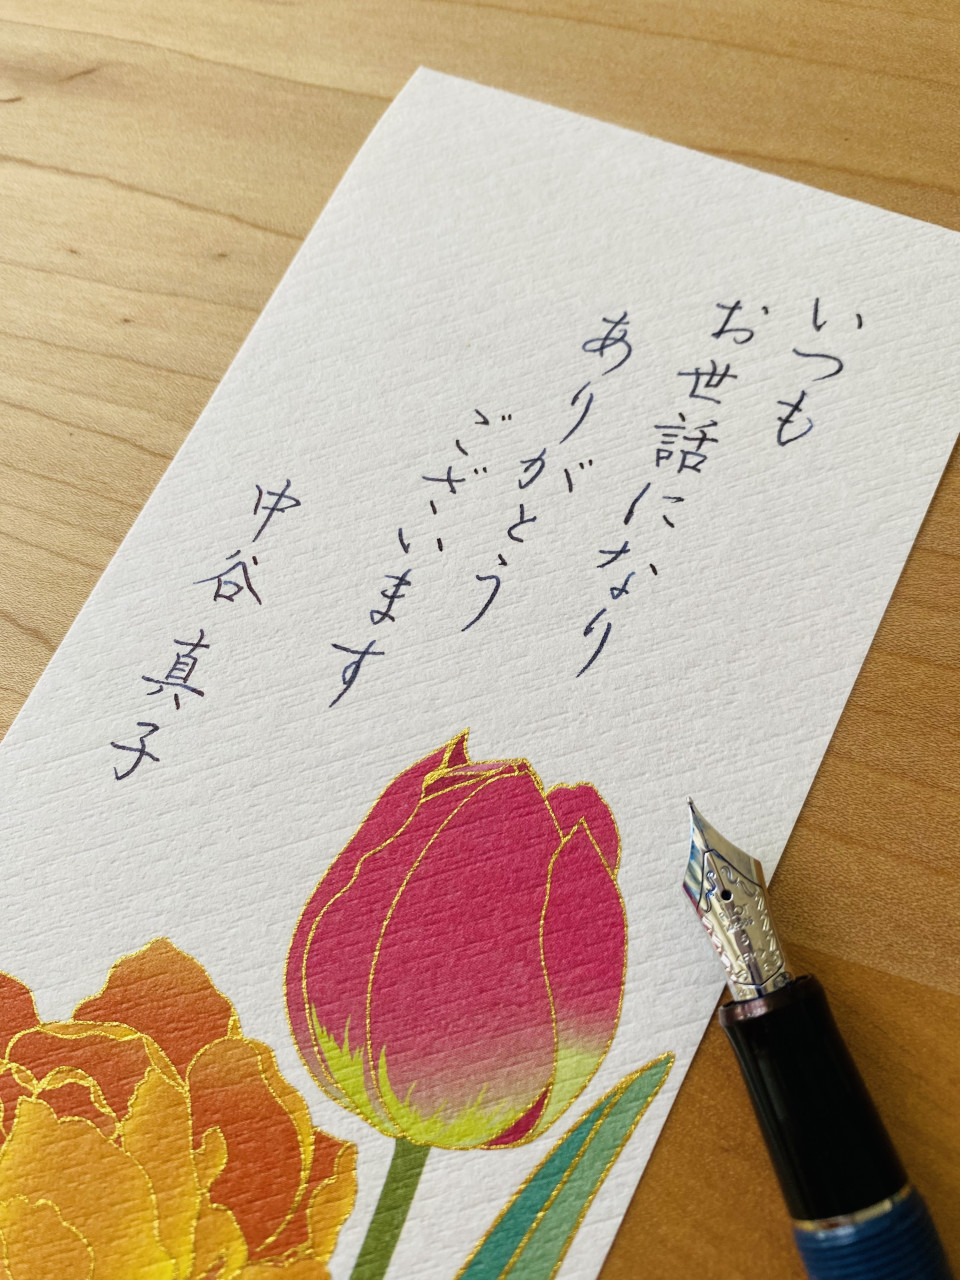 いつも
お世話になり
ありがとう
ございます
中谷 真子